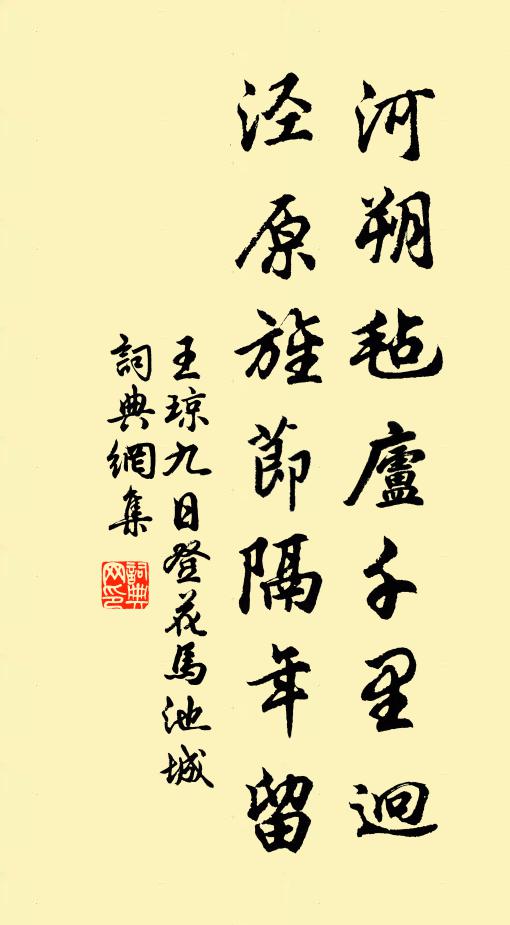 河朔毡廬千里迥
泾原旌節隔年留
王琼九日登花馬池城
詞典網集
詞典网印